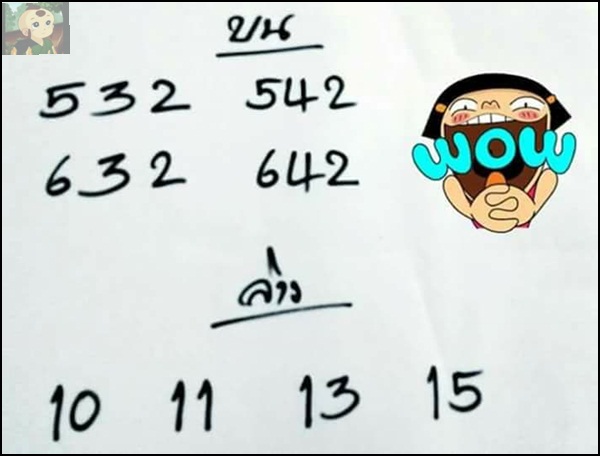 บน
532 542
632 642
WOW
ล่าง
10 11 13 15